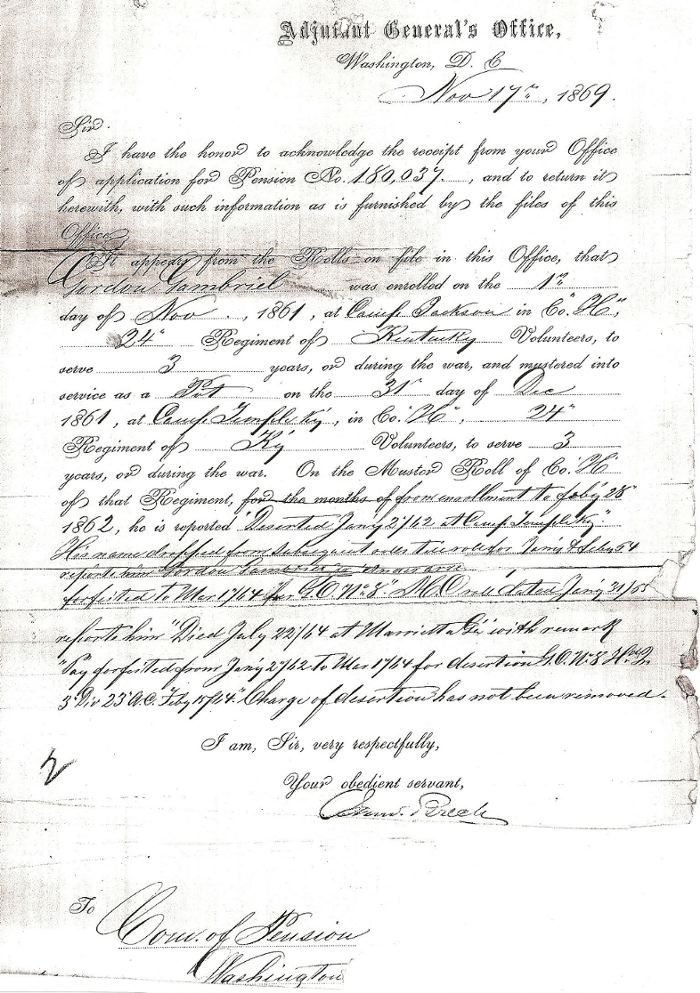 Adjutant General's Office,
Washington, D. C
Nov 17th, 1869.
Sir.
I have the honor to acknowledge the receipt from your Office
of application for Pension No. 180,037, and to return it
herewith, with such information as is furnished by the files of this
Office.
It appears from the Rolls on file in this Office, that
Gordon Gambriel was enrolled on the 1st
day of Nov., 1861, at Camp Jackson in Co. "H",
24" Regiment of Kentucky Volunteers, to
serve 3 years, or during the war, and mustered into
service as a Pvt on the 31" day of Dec
1861, at Camp Temple Ky, in Co. "H", 24"
Regiment of Ky Volunteers, to serve 3
years, or during the war. On the Muster Roll of Co. "H"
of that Regiment, for the months of from enrollment to Feby 28
1862, he is reported "Deserted Jany 27/62 at Camp Temple Ky."
His name dropped from subsequent rolls for Jany & Feby 64
report him Gordon Gambriel
forfeited to Mar 1/64 per G.O. No 8" M O roll dated Jany 31/65
reports him "Died July 22/64 at Marrietta Ga" with remark
"Pay forfeited from Jany 27/62 to Mar 1/64 for desertion G.O. No 8 Hd Qrs
3" Div 23" A.C. Feby 15/64." Charge of desertion has not been removed.
I am, Sir, very respectfully,
Your obedient servant,
2
To
Com. of Pension
Washington